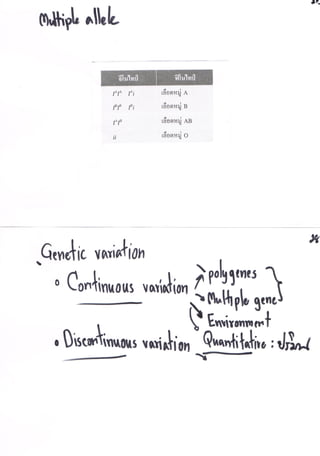 Multiple allele
จีโนไทป์ ฟีโนไทป์
IᴬIᴬ Iᴬi เลือดหมู่ A
IᴮIᴮ Iᴮi เลือดหมู่ B
IᴬIᴮ เลือดหมู่ AB
ii เลือดหมู่ O
Genetic variation
polygenes
Continuous variation Multiple gene
Environment
Discontinuous variation Quantitative :